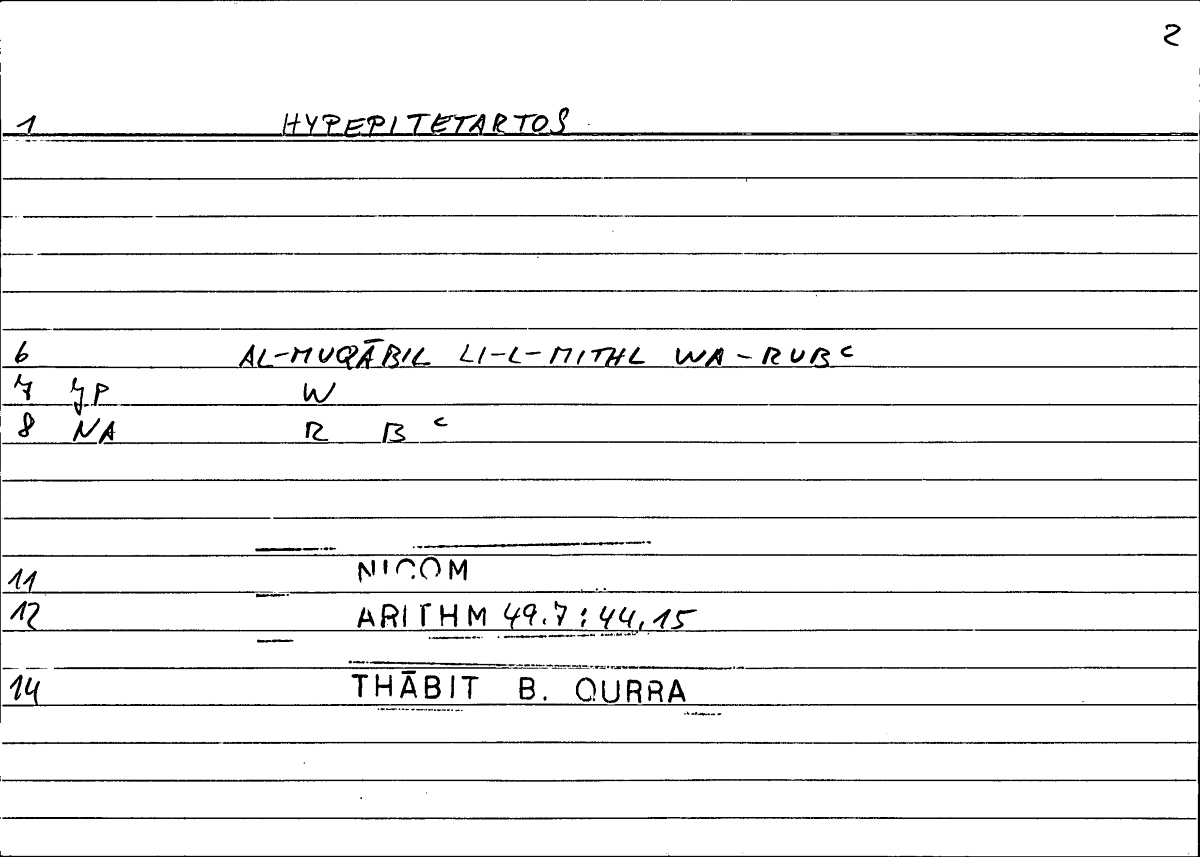 2
1 HYPEPITETARTOS
6 AL-MUQĀBIL LI-L-MITHL WA-RUBᶜ
7 JP W
8 NA R B ᶜ
11 NICOM
12 ARITHM 49.7:44,15
14 THĀBIT B. QURRA